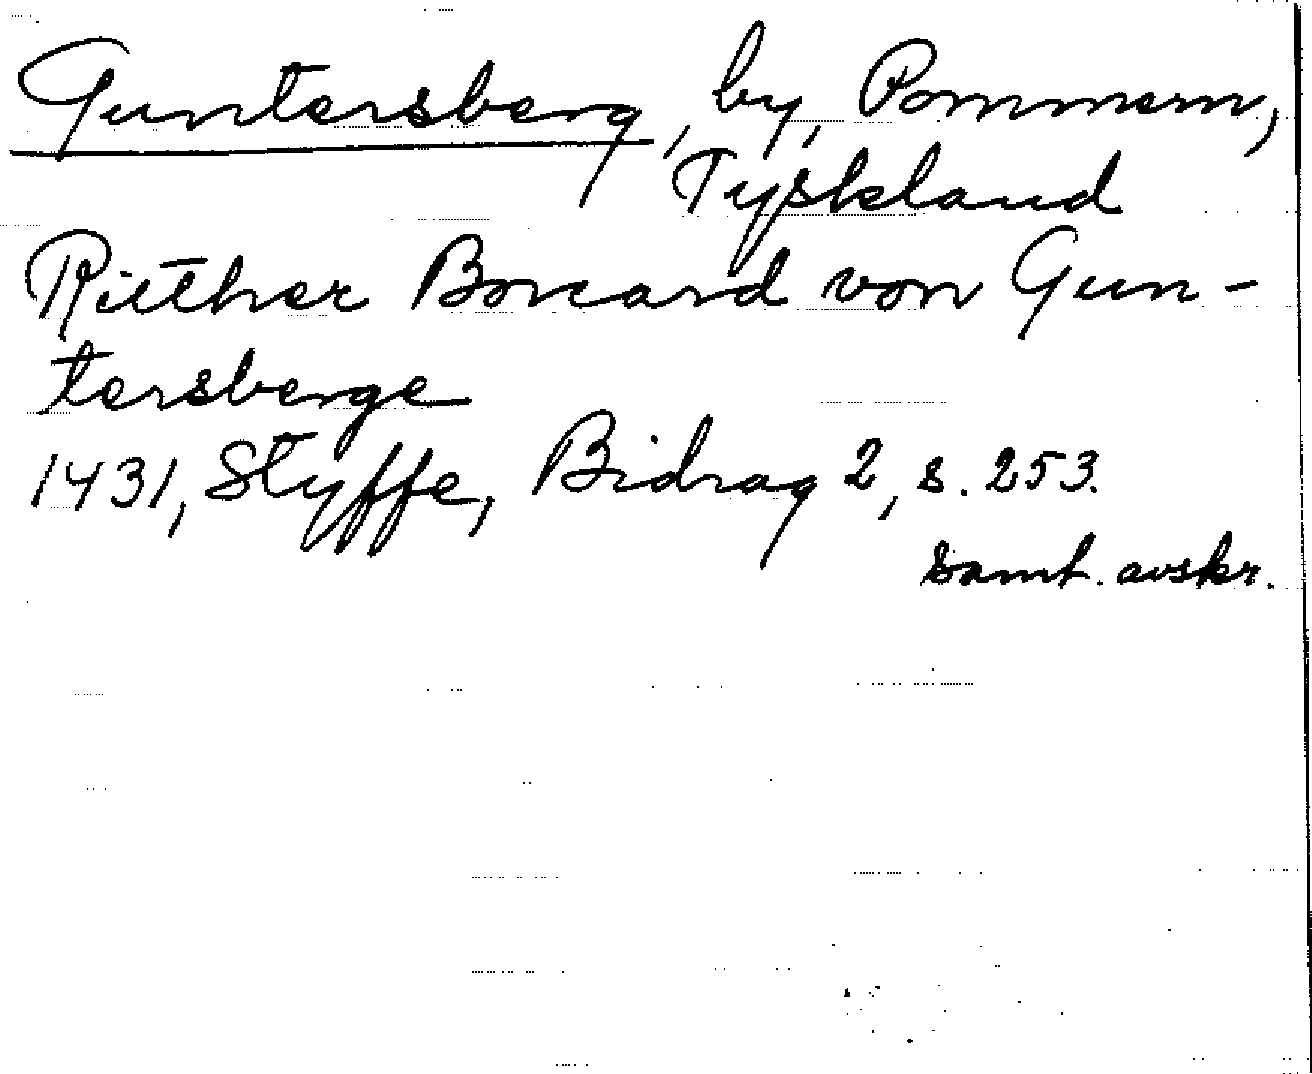 Guntersberg, by, Pommern,
Tyskland
Ritther Borcard von Gun-
tersberge
1431, Styffe, Bidrag 2, s. 253.
Samt. avskr.